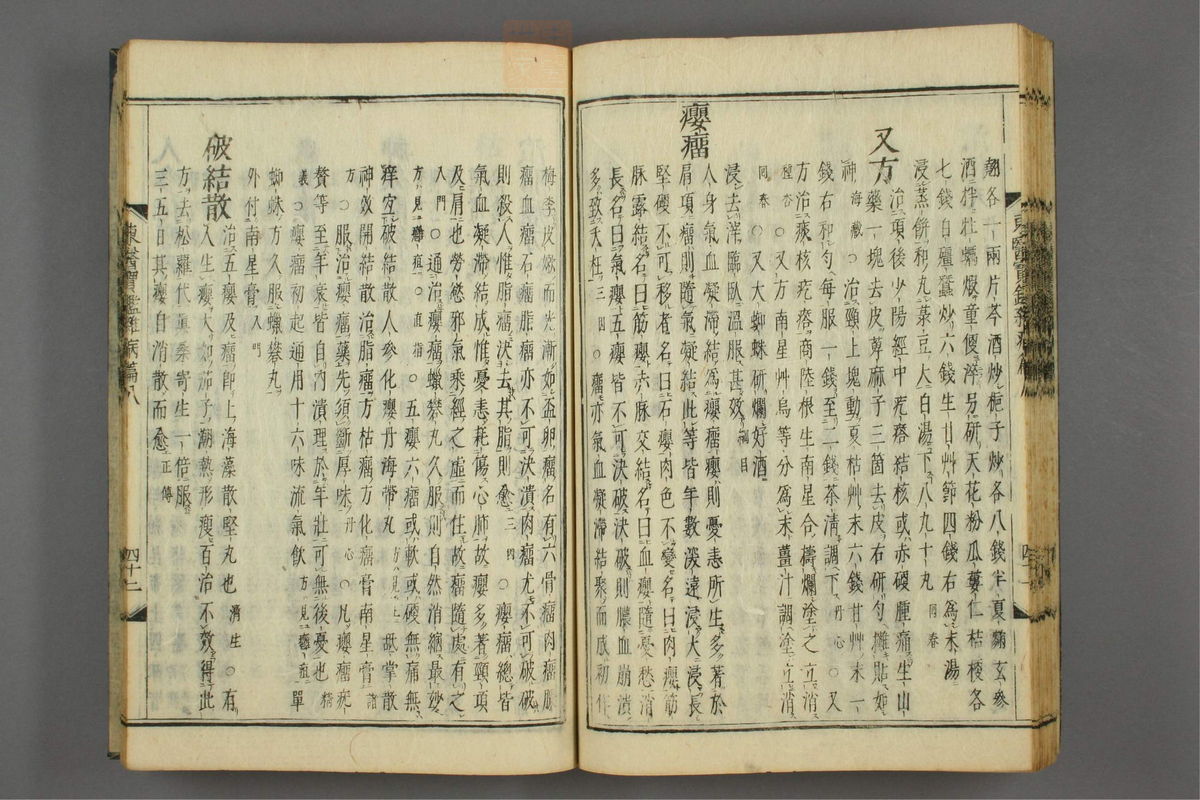 翹各一兩片芩酒炒梔子炒各八錢半夏貝母玄參
酒拌牡蠣煆童便淬另研天花粉瓜蔞仁桔梗各
七錢自殭蠶炒六錢生甘艸節四錢右爲末湯
浸蒸餠和丸菉豆大白湯下八九十丸回春
又方治項後少陽經中疙瘩結核或赤硬腫痛生山
藥一塊去皮萆麻子三箇去皮右硏勻攤貼如
神海藏○治頸上塊動夏枯艸末六錢甘艸末一
錢右和勻每服一錢至二錢茶淸調下丹心○又
方治痰核疙瘩商陸根生南星合擣爛塗之立消
種杏○又方南星艸烏等分爲末薑汁調塗立消
回春○又大蜘蛛硏爛好酒
浸去滓臨臥溫服甚效綱目
癭瘤人身氣血凝滯結爲癭瘤癭則憂恚所生多著於
肩項瘤則隨氣凝結此等皆年數深遠浸大浸長
堅硬不可移者名曰石癭肉色不變名曰肉癭筋
脉露結名曰筋癭赤脉交結名曰血癭隨憂愁消
長名曰氣癭五癭皆不可決破決破則膿血崩潰
多致夭枉三因○瘤亦氣血凝滯結聚而成初作
梅李皮嫩而光漸如盃卵瘤名有六骨瘤肉瘤膿
瘤血瘤石瘤脂瘤亦不可決潰肉瘤尤不可破破
則殺人惟脂瘤決去其脂則愈三因○癭瘤總皆
氣血凝滯結成惟憂恚耗傷心肺故癭多著頸項
及肩也勞慾邪氣乘經之虛而住故瘤隨處有之
入門○通治癭瘤蠟礬丸久服則自然消縮最妙
方見癰疽○直指○五癭六瘤或軟或硬無痛無
痒宜破結散人參化癭丹海帶丸方見上舐掌散
神效開結散治脂瘤方枯瘤方化瘤膏南星膏諸
方○服治癭瘤藥先須斷厚味丹心○凡癭瘤疣
贅等至年衰皆自內潰理於年壯可無後憂也精
義○癭瘤初起通用十六味流氣飮方見癰疽單
蜘蛛方久服蠟礬丸
外付南星膏入門
破結散治五癭及瘤卽上海藻散堅丸也濟生○有
人生癭大如茄子潮熱形瘦百治不效得此
方去松蘿代眞桑寄生一倍服
三五日其癭自消散而愈正傳
東醫寶鑑雜病篇八
四十二